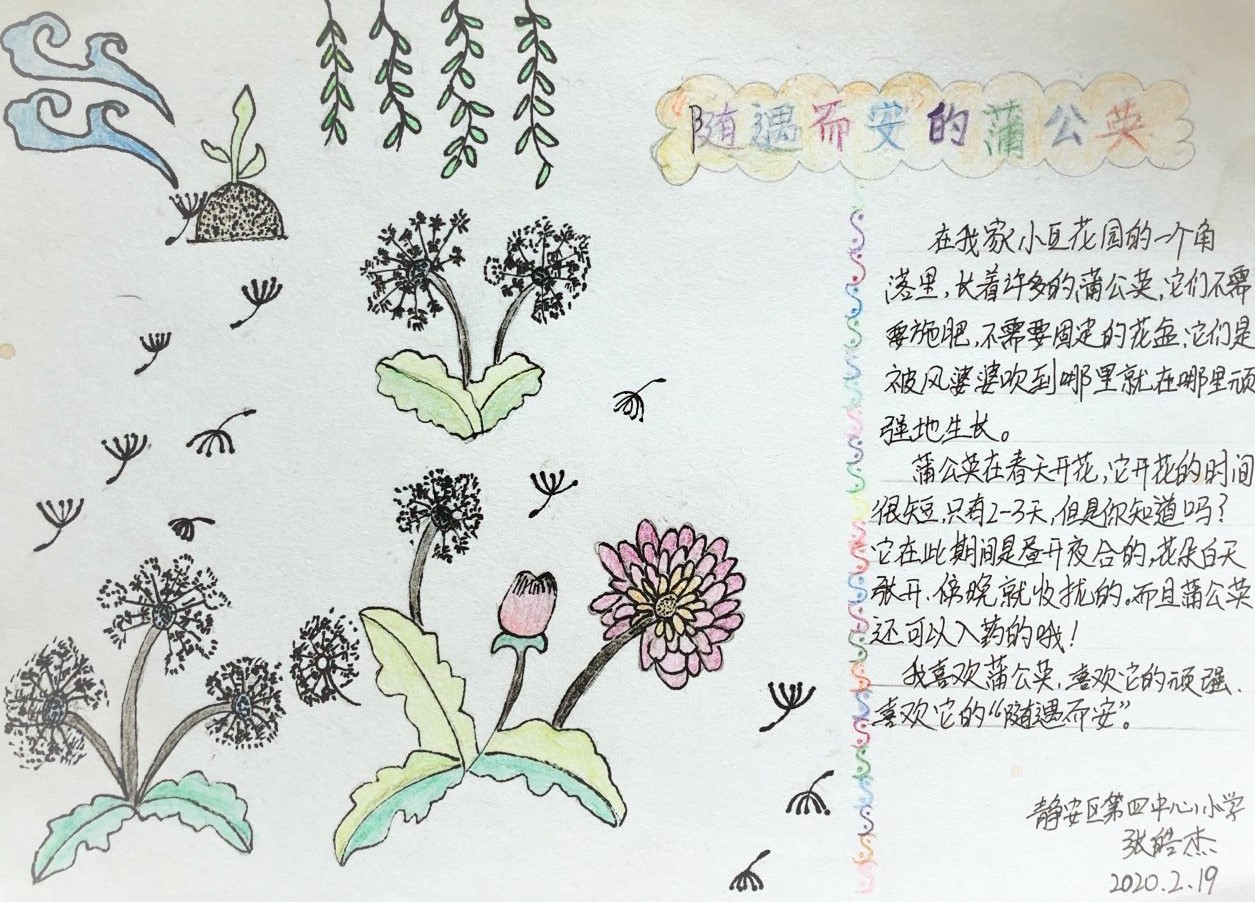 随遇而安的蒲公英
在我家小豆花园的一个角
落里,长着许多的蒲公英,它们不需
要施肥,不需要固定的花盆,它们是
被风婆婆吹到哪里就在哪里顽
强地生长。
蒲公英在春天开花,它开花的时间
很短,只有2-3天,但是你知道吗?
它在此期间是昼开夜合的,花朵白天
张开,傍晚就收拢的。而且蒲公英
还可以入药的哦!
我喜欢蒲公英,喜欢它的顽强,
喜欢它的“随遇而安”。
静安区第四中心小学
张皓杰
2020.2.19